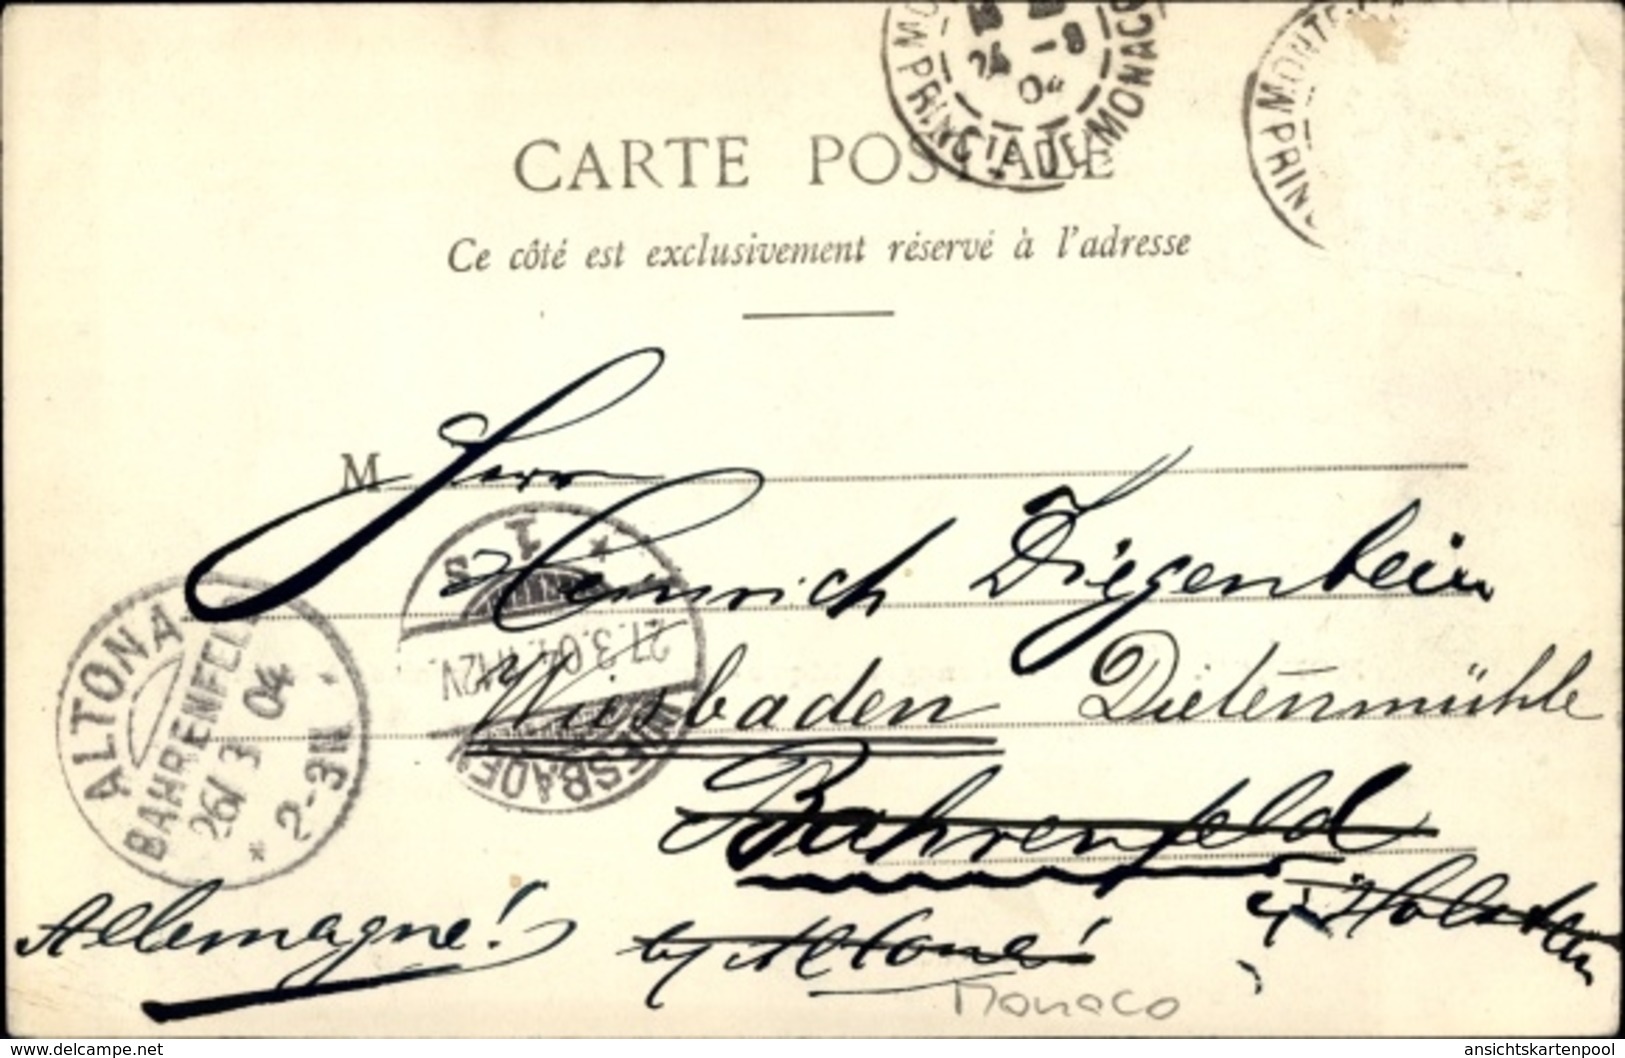 MONACO
PRINCTE DE MONACO
24 -8
04
MONTE-
PRIN
CARTE POSTALE
Ce côté est exclusivement réservé à l'adresse
M Herrn
Heinrich Diegenbein
Wiesbaden Dietenmühle
Bahrenfeld
Holstein
Allemagne!
Monaco
ALTONA
BAHRENFELD
26/3 04
* 2-3N
* 1 s
27.3.04. 11-12V.
WIESBADEN
www.delcampe.net
ansichtskartenpool